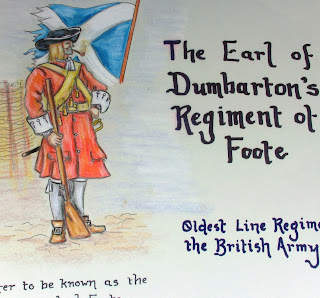 The Earl of
Dumbarton's
Regiment of
Foote
Oldest Line Regime
the British Army
ter to be known as the